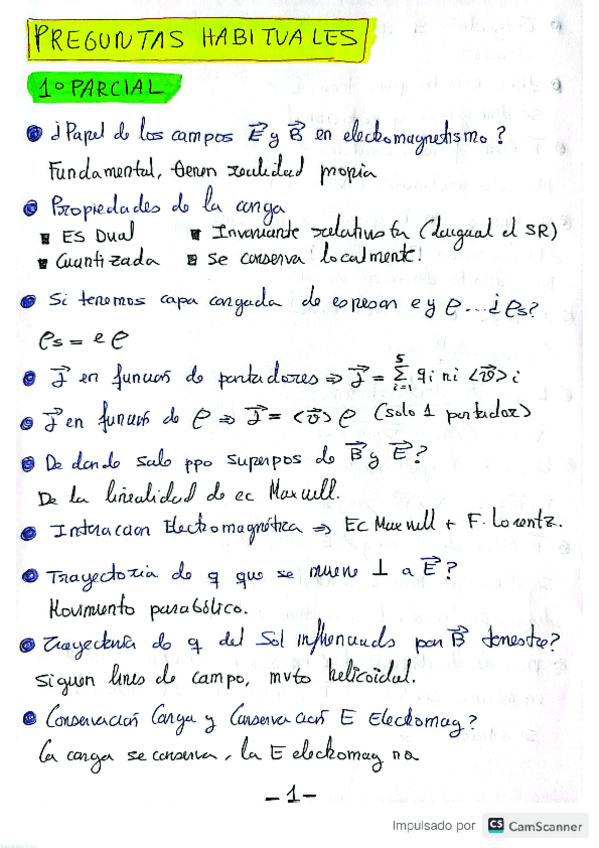 PREGUNTAS HABITUALES
1º PARCIAL
¿Papel de los campos E⃗ y B⃗ en electromagnetismo?
Fundamental, tienen realidad propia
Propiedades de la carga
ES Dual Invariante relativista (da igual el SR)
Cuantizada se conserva localmente!
Si tenemos capa cargada de espesor e y ρ...¿ρs?
ρs = e ρ
J⃗ en función de portadores ⇒ J⃗ = Σ_{i=1}^{S} qi ni <v⃗>i
J⃗ en función de ρ ⇒ J⃗ = <v⃗> ρ (solo 1 portador)
De donde sale ppo superpos de B⃗ y E⃗?
De la linealidad de ec Maxwell.
Interaccion Electromagnética ⇒ Ec Maxwell + F. Lorentz.
Trayectoria de q que se mueve ⊥ a E⃗?
Movimiento parabólico.
Trayectoria de q del Sol influenciado por B⃗ terrestre?
Siguen lines de campo, mvto helicoidal.
Conservación Carga y Conservación E Electromag?
La carga se conserva, la E electromag no
-1-
Impulsado por CS CamScanner